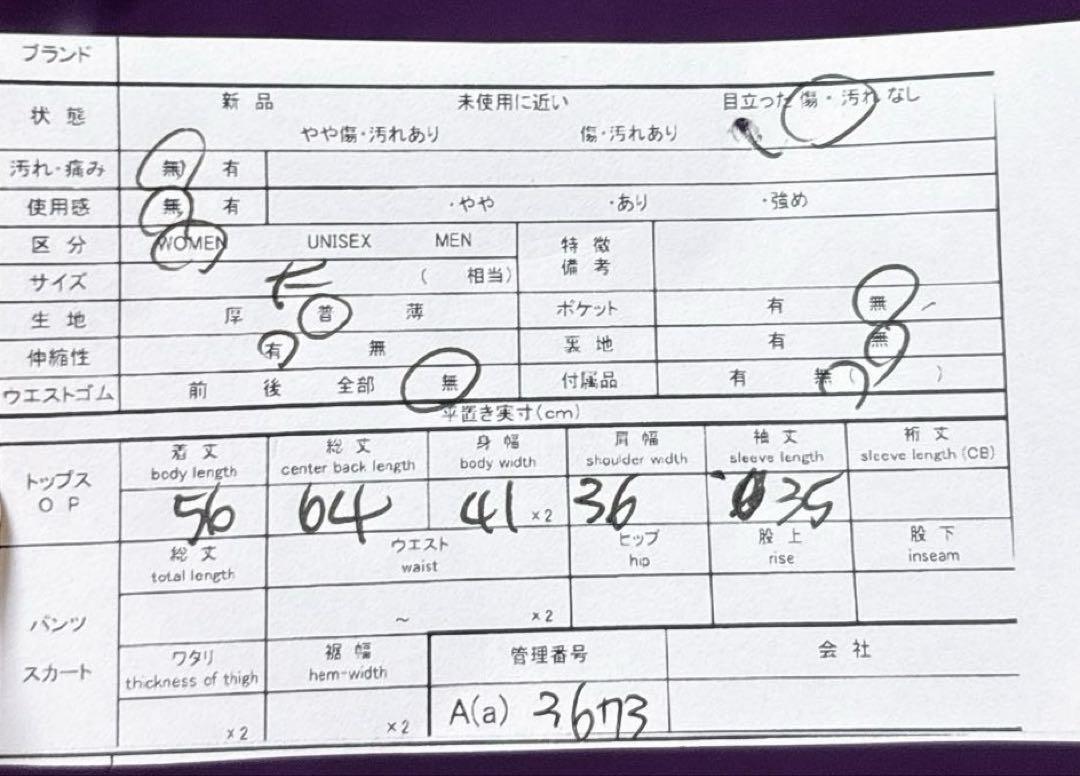 ブランド
状態 新品 未使用に近い 目立った傷・汚れなし
やや傷・汚れあり 傷・汚れあり
汚れ・痛み 無 有
使用感 無 有 ・やや ・あり ・強め
区分 WOMEN UNISEX MEN 特徴
備考
サイズ ( 相当)
生地 厚 普 薄 ポケット 有 無
伸縮性 有 無 裏地 有 無
ウエストゴム 前 後 全部 無 付属品 有 無( )
平置き実寸(cm)
トップス
OP
着丈 総丈 身幅 肩幅 袖丈 裄丈
body length center back length body width shoulder width sleeve length sleeve length (CB)
56 64 41 ×2 36 35
総丈 ウエスト ヒップ 股上 股下
total length waist hip rise inseam
パンツ ～ ×2
スカート
ワタリ 裾幅 管理番号 会社
thickness of thigh hem-width
×2 ×2 A(a) 3673